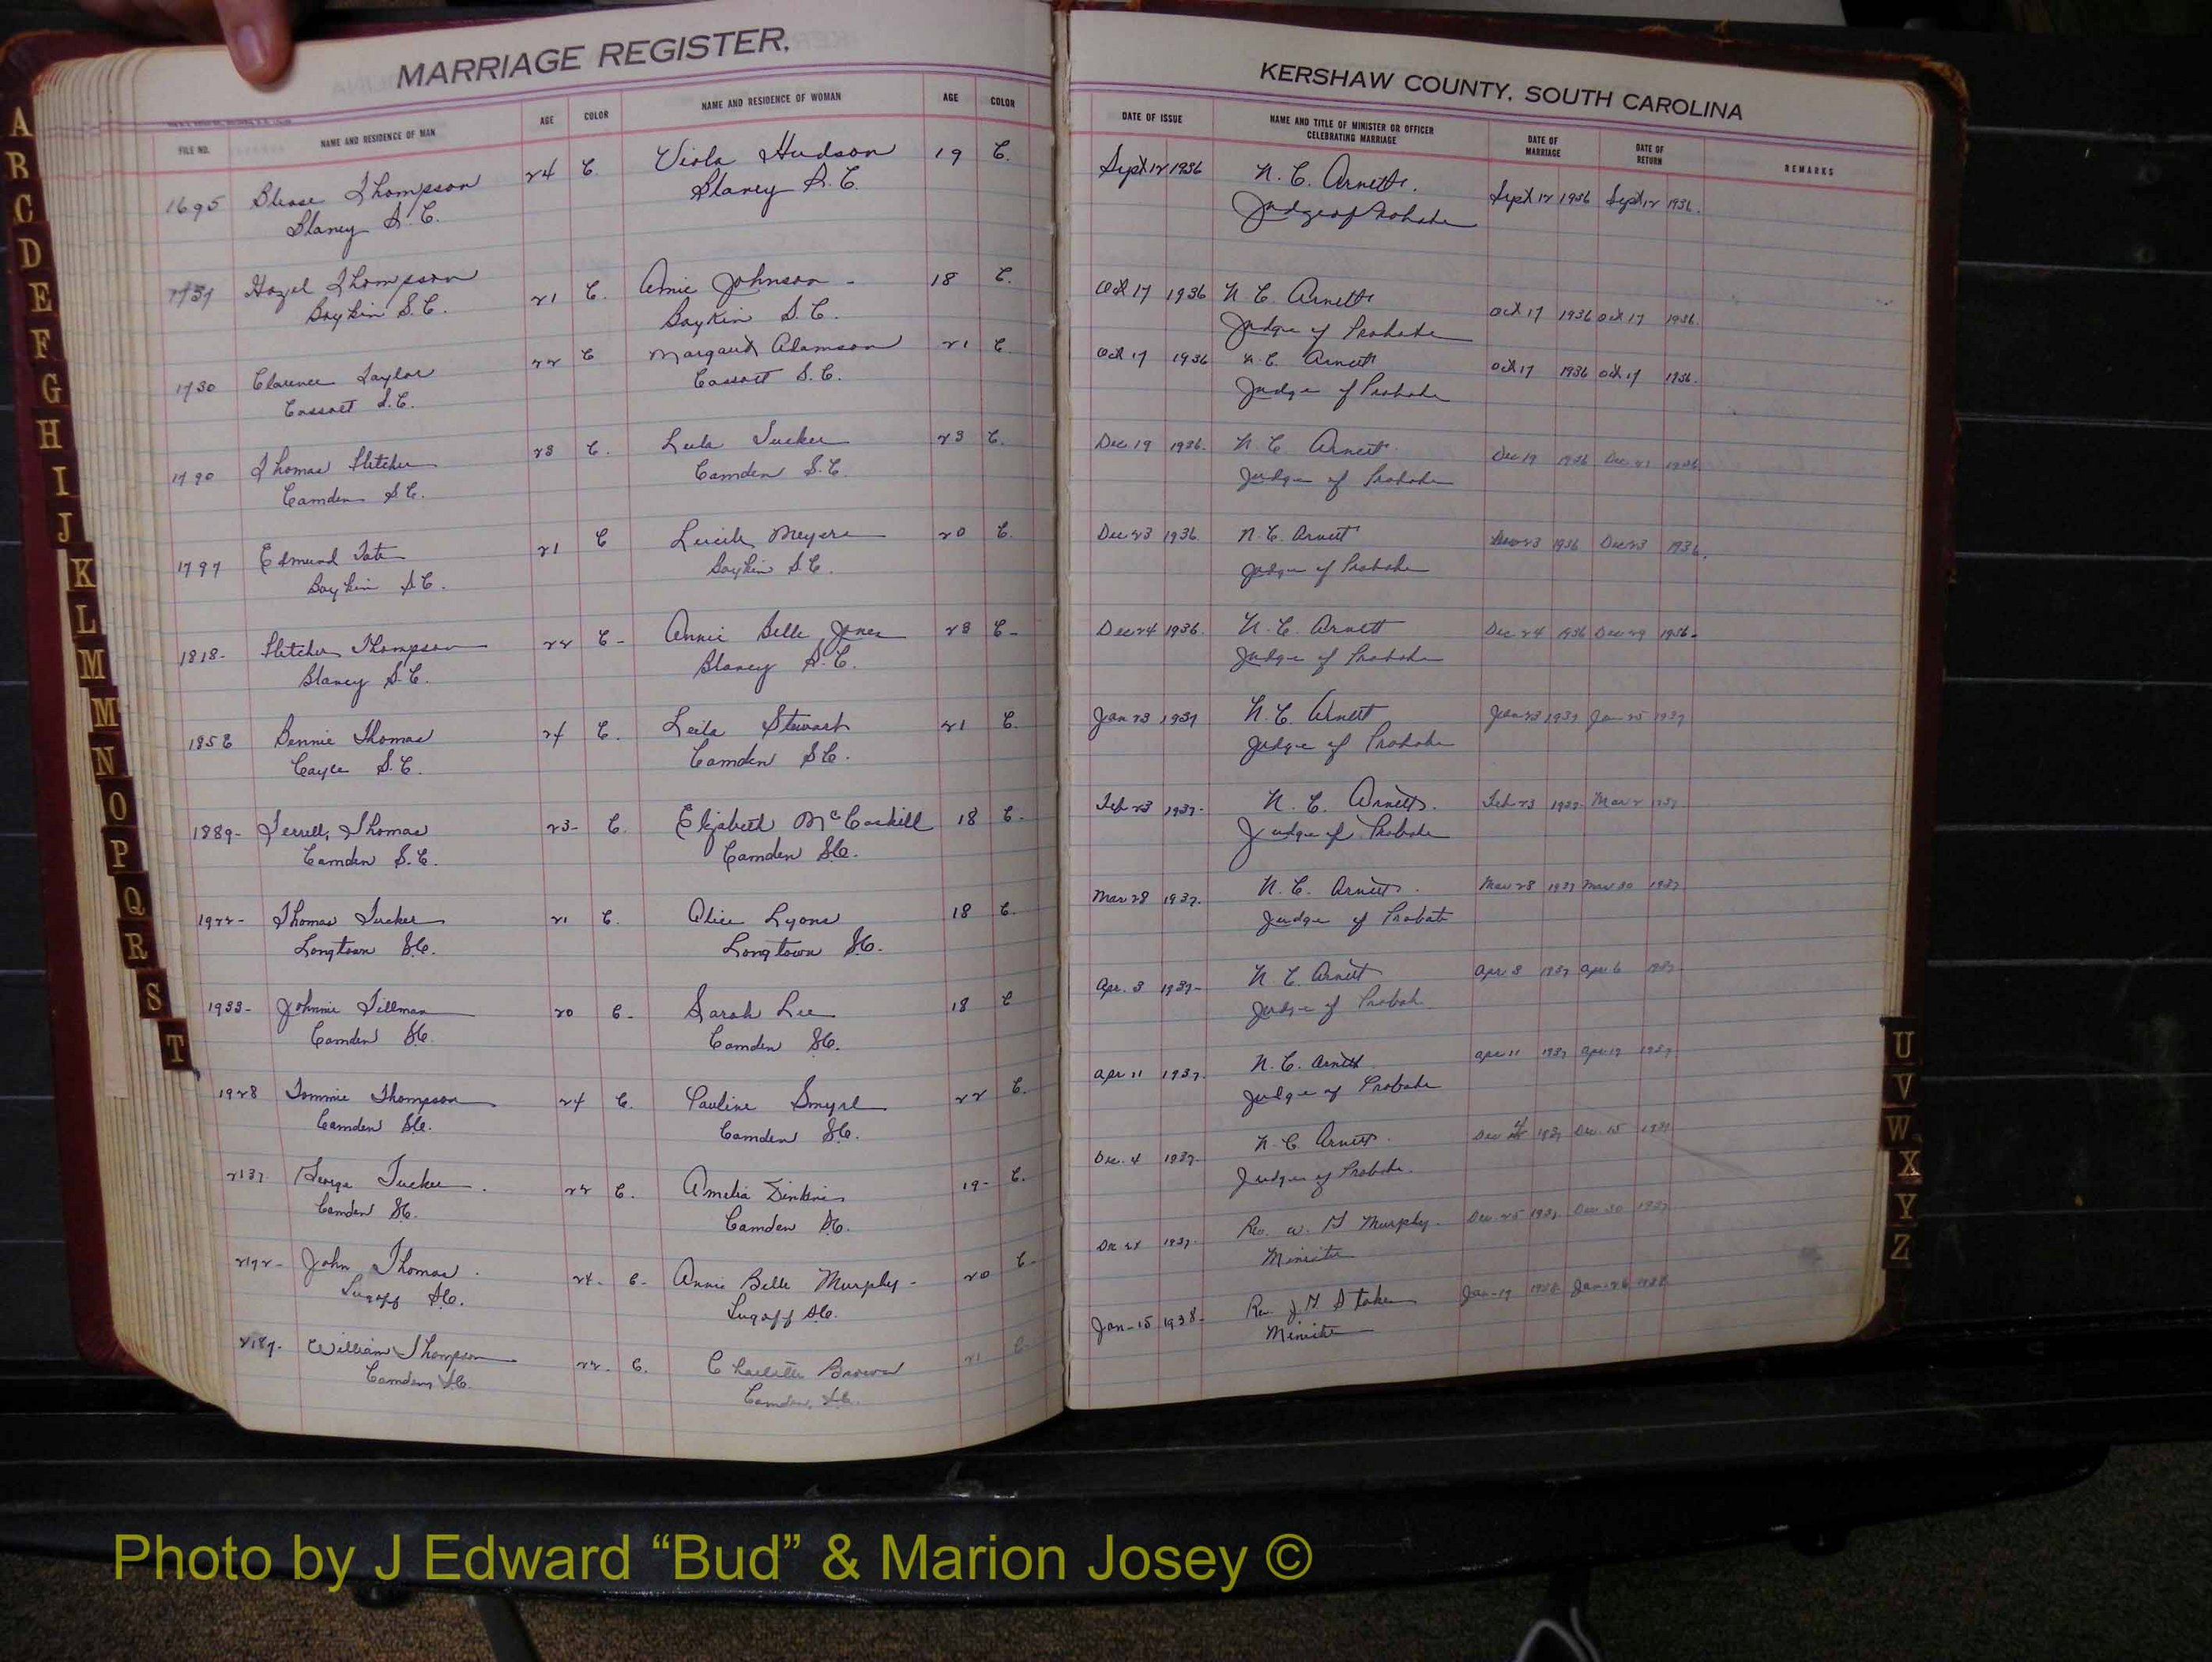 MARRIAGE REGISTER.
FILE NO. NAME AND RESIDENCE OF MAN AGE COLOR NAME AND RESIDENCE OF WOMAN AGE COLOR
1695 Blease Thompson 24 C Viola Hudson 19 C.
Blaney S.C. Blaney S.C.
Hazel Thompson 21 C. Amie Johnson - 18 C.
Boykin S.C. Boykin S.C.
1730 Clarence Taylor 22 C Margaret Adamson 21 C
Cassatt S.C. Cassatt S.C.
1790 Thomas Fletcher 23 C. Lula Tucker 23 C.
Camden S.C. Camden S.C.
1797 Edmund Tate 21 C Lucile Meyers 20 C.
Boykin S.C. Boykin S.C.
1818- Fletcher Thompson 22 C- Annie Belle Jones 28 C-
Blaney S.C. Blaney S.C.
Bennie Thomas 24 C. Leila Stewart 21 C.
Cayce S.C. Camden S.C.
1889- Terrell, Thomas 23- C. Elizabeth McCaskill 18 C-
Camden S.C. Camden S.C.
1922- Thomas Tucker 21 C. Alice Lyons 18 C.
Longtown S.C. Longtown S.C.
1933- Johnnie Tillman 20 C- Sarah Lee 18 C
Camden S.C. Camden S.C.
1928 Tommie Thompson 24 C. Pauline Smyrl 22 C.
Camden S.C. Camden S.C.
2137 George Tucker. 22 C. Amelia Dinkins 19- C.
Camden S.C. Camden S.C.
2172- John Thomas. 24- C- Annie Belle Murphy- 20 C-
Lugoff S.C. Lugoff S.C.
2187- William Thompson 22- C. Brown 21 C-
Camden, S.C. Camden, S.C.
KERSHAW COUNTY, SOUTH CAROLINA
DATE OF ISSUE NAME AND TITLE OF MINISTER OR OFFICER CELEBRATING MARRIAGE DATE OF MARRIAGE DATE OF RETURN REMARKS
Sept 12 1936 N. C. Arnett. Sept 12 1936 Sept 12 1936.
Judge of Probate
Oct 17 1936 N. C. Arnett Oct 17 1936 Oct 17 1936.
Judge of Probate
Oct 17 1936 N. C. Arnett Oct 17 1936 Oct 17 1936.
Judge of Probate
Dec. 19 1936. N. C Arnett. Dec 19 1936 Dec 1936
Judge of Probate
Dec 23 1936. N. C. Arnett Dec 23 1936 Dec 23 1936.
Judge of Probate
Dec 24 1936. N. C. Arnett Dec. 24 1936 Dec 29 1936-
Judge of Probate
Jan 23 1937 N. C. Arnett Jan 23 1937 Jan 25 1937
Judge of Probate
Feb 23 1937- N. C. Arnett. Feb 23 1937- Mar 2 1937-
Judge of Probate
Mar 28 1937. N. C. Arnett. Mar 28 1937 Mar 30 1937
Judge of Probate
Apr. 3 1937- N. C Arnett Apr 3 1937 Apr 6 1937
Judge of Probate
Apr 11 1937. N. C. Arnett Apr 11 1937 Apr 19 1937
Judge of Probate
Dec. 4 1937- N. C. Arnett. Dec 4 1937 Dec. 15 1937
Judge of Probate.
Dec 24 1937- Rev. W. Murphy. Dec 25 1937 Dec 30 1937
Minister
Jan-15 1938- Rev. Stokes Jan-19 1938 Jan-26 1938
Minister
A
B
C
D
E
F
G
H
I
J
K
L
M
M
N
O
P
Q
R
S
T
U
V
W
X
Y
Z
Photo by J Edward “Bud” & Marion Josey ©